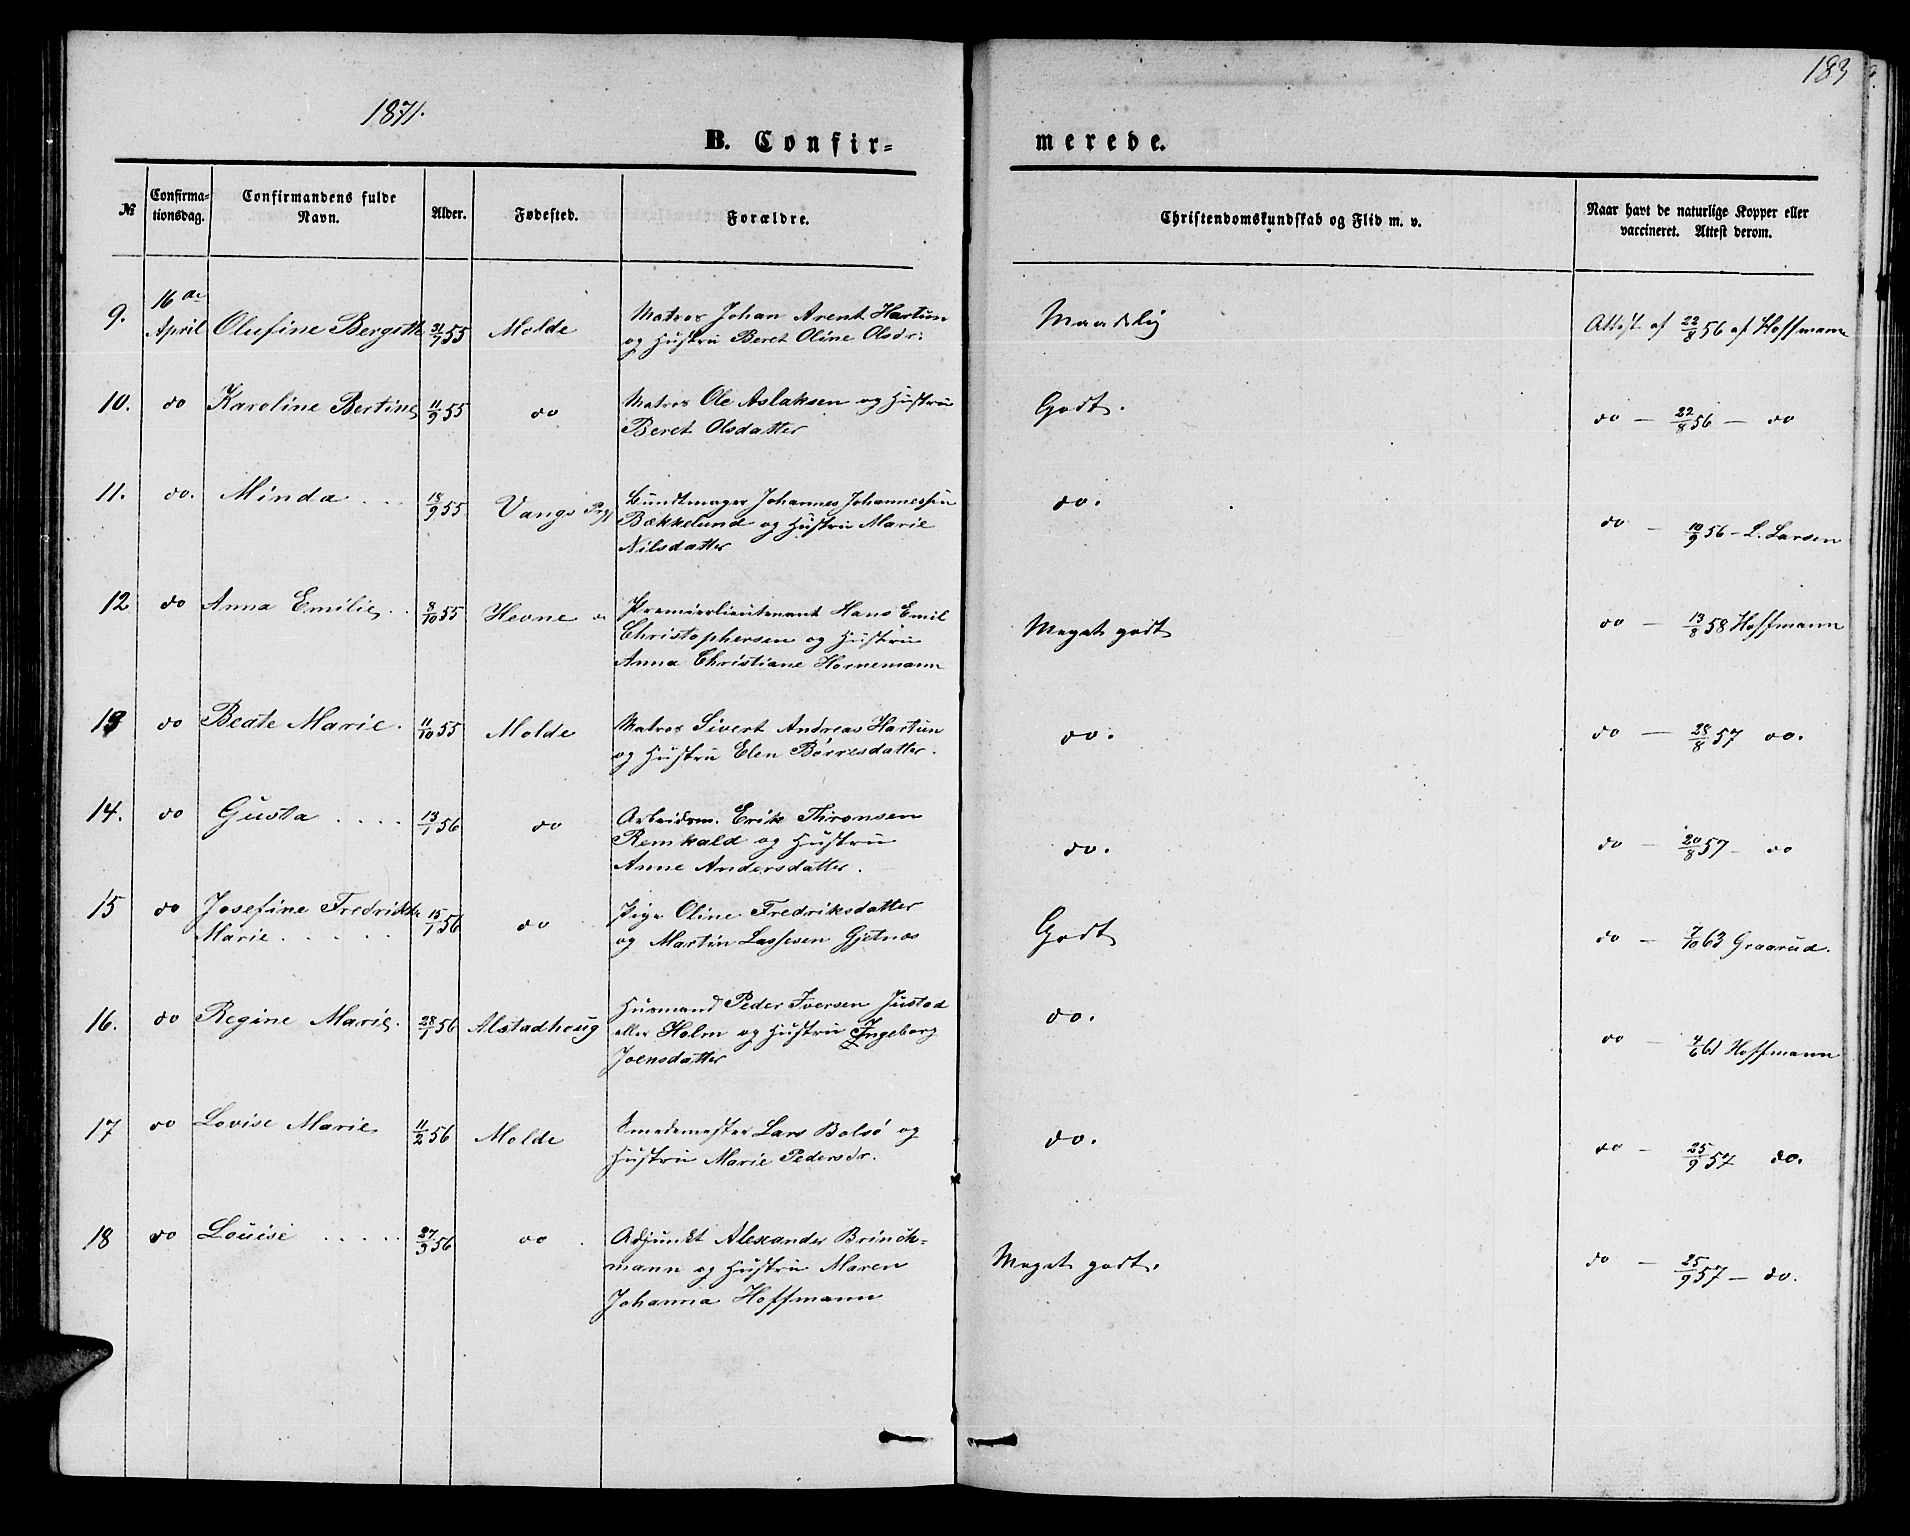 183
1871.
B. Confir-
merede.
№
Confirma-
tionsdag.
Confirmandens fulde
Navn.
Alder.
Fødested.
Forældre.
Christendomskundskab og Flid m. v.
Naar havt de naturlige Kopper eller
vaccineret. Attest derom.
9. 16de April Olufine Bergitte 31/7 55 Molde Matros Johan Arent Hartun Maadelig Attest af 22/8 56 af Hoffmann
og Hustru Beret Oline Olsdr:
10. do Karoline Bertine 11/9 55 do Matros Ole Aslaksen og Hustru Godt. do - 22/8 56 - do
Beret Olsdatter
11. do. Minda 18/9 55 Vangs Prgj Bundtmager Johannes Johannessen do. do - 10/9 56 - L. Larsen
Bækkelund og Hustru Marie
Nilsdatter
12 do Anna Emilie 8/10 55 Hevne Premierlieutenant Hans Emil Meget godt do - 13/8 58 Hoffmann
Christophersen og Hustru
Anna Christiane Hornemann
13 do Beate Marie. 11/10 55 Molde Matros Sivert Andreas Hartun do. do - 28/8 57 do.
og Hustru Elen Børresdatter.
14. do Gusta 13/1 56 do Arbeidsm. Erik Thronsen do. do - 20/8 57 - do
Remkald og Hustru
Anne Andersdatter.
15 do Josefine Fredrikke 15/1 56 do Pige Oline Fredriksdatter Godt do - 7/10 63 Graarud.
Marie og Martin Lassesen Gjetnes
16. do Regine Marie. 28/1 56 Alstadhoug Husmand Peder Iversen Justad do. do - 4/6 61 Hoffmann
eller Holm og Hustru Ingeborg
Joensdatter
17 do Lovise Marie 11/2 56 Molde Smedemester Lars Bolsø og do. do - 25/9 57 do.
Hustru Marie Pedersdr.
18 do Louise 27/3 56 do Adjunkt Alexander Brinch- Meget godt. do - 25/9 57 - do.
mann og Hustru Maren
Johanna Hoffmann